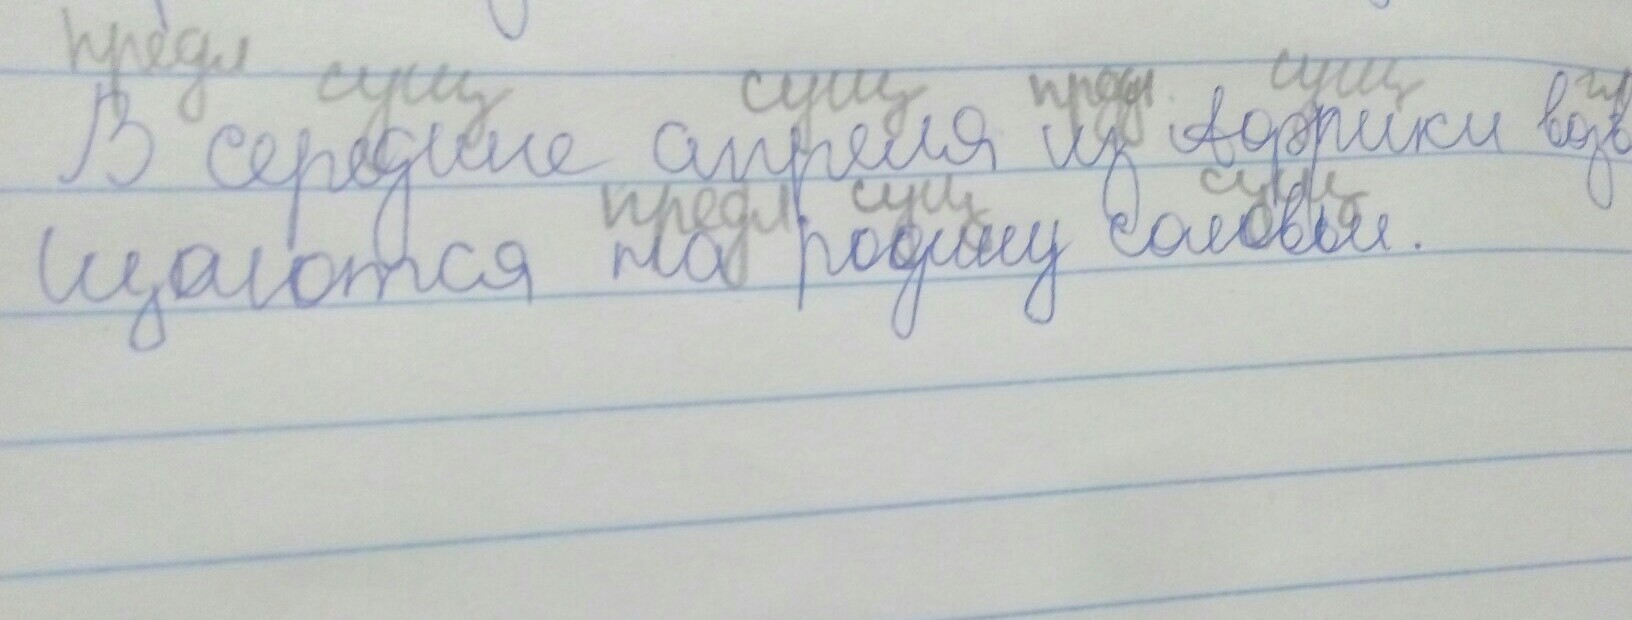 предл сущ сущ предл. сущ гл
В середине апреля из Африки возв
предл сущ сущ
щаются на родину соловьи.